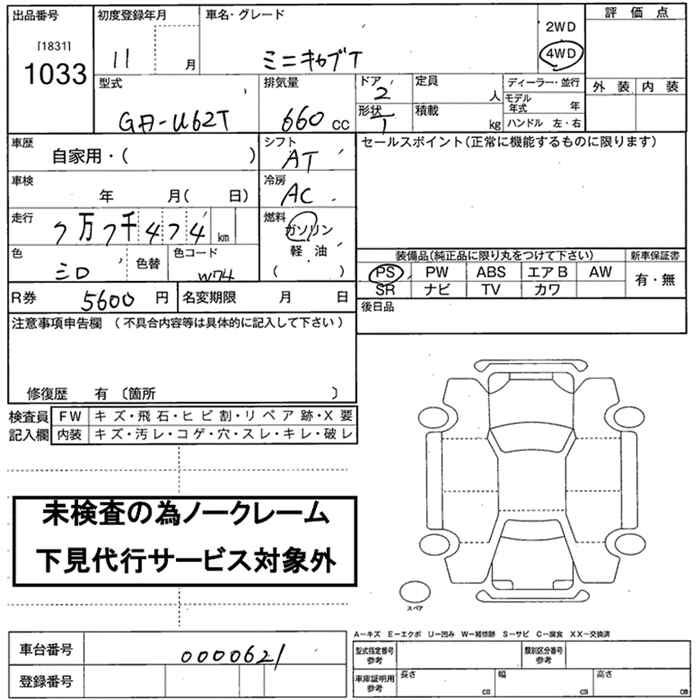 出品番号 初度登録年月 車名・グレード 2WD 評価点
[1831] 1033 11 月 ミニキャブT 4WD
型式 排気量 ドア 2 定員 人 ディーラー・並行 外装 内装
GD-U62T 660 cc 形状 1 積載 kg モデル年式 年
ハンドル 左・右
車歴 自家用・( ) シフト AT セールスポイント(正常に機能するものに限ります)
車検 年 月( 日) 冷房 AC
走行 7万7千474 km 燃料 ガソリン
軽油
( )
色 シロ 色替 色コード W74
装備品(純正品に限り丸をつけて下さい) 新車保証書
PS PW ABS エアB AW 有・無
SR ナビ TV カワ
R券 5600 円 名変期限 月 日 後日品
注意事項申告欄 (不具合内容等は具体的に記入して下さい)
修復歴 有 〔箇所 〕
検査員 FW キズ・飛石・ヒビ割・リペア跡・X要
記入欄 内装 キズ・汚レ・コゲ・穴・スレ・キレ・破レ
未検査の為ノークレーム
下見代行サービス対象外
スペア
A−キズ E−エクボ U−凹み W−補修跡 S−サビ C−腐食 XX−交換済
車台番号 0000621 型式指定番号 参考 類別区分番号 参考
登録番号 車庫証明用 参考 長さ cm 幅 cm 高さ cm